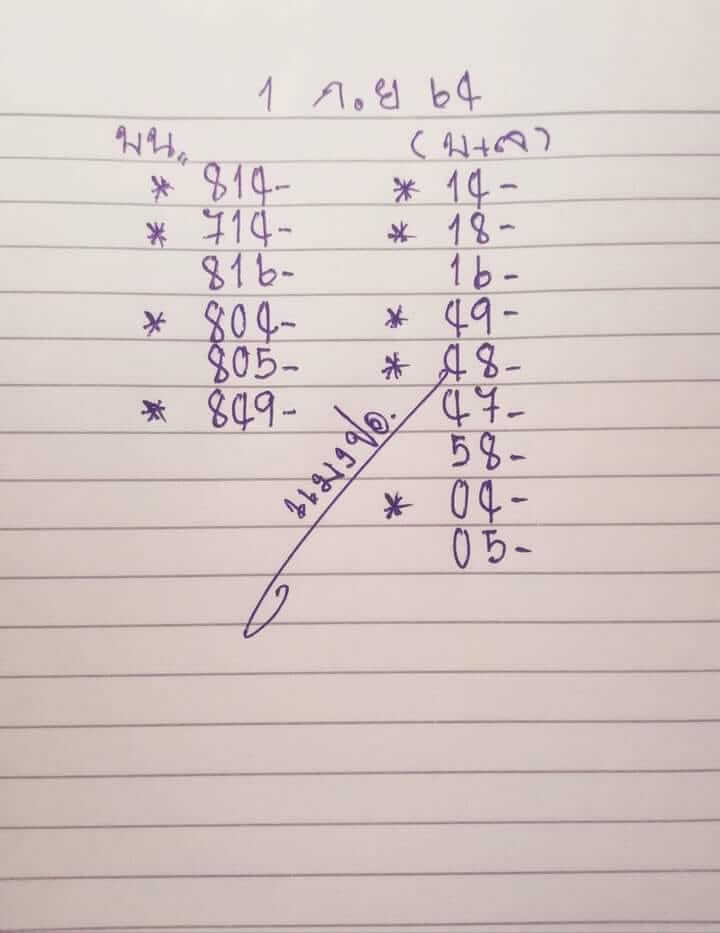 1 ก.ย 64
บน.. (บ+ล)
* 814- * 14-
* 714- * 18-
816- 16-
* 804- * 49-
805- * 48-
* 849- 47-
58-
* 04-
05-